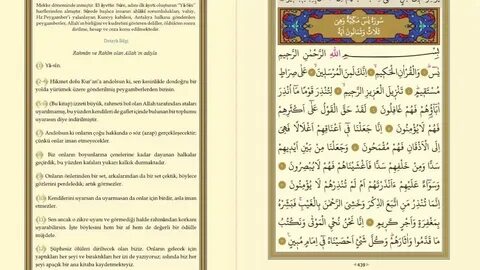 Mekke döneminde inmiştir. 83 âyettir. Sûre, adını ilk âyeti oluşturan "Yâ-Sîn"
harflerinden almıştır. Sûrede başlıca insanın ahlâkî sorumlulukları, vahiy,
Hz.Peygamber'i yalanlayan Kureyş kabilesi, Antakya halkına gönderilen
peygamberler, Allah'ın birliğini ve kudretini gösteren deliller, öldükten sonra
dirilme, hesap ve ceza konu edilmektedir.
Detaylı Bilgi
Rahmân ve Rahîm olan Allah'ın adıyla
Yâ-sîn.
Hikmet dolu Kur'an'a andolsun ki, sen kesinlikle dosdoğru bir
yolda yürümek üzere gönderilmiş peygamberlerden birisin.
(Bu kitap) izzeti büyük, rahmeti bol olan Allah tarafından ataları
uyarılmamış, bu yüzden kendileri de gaflet içinde bulunan bir toplumu
uyarasın diye indirilmiştir.
Andolsun ki onların çoğu hakkında o söz (azap) gerçekleşecektir;
çünkü onlar iman etmeyecekler.
Biz onların boyunlarına çenelerine kadar dayanan halkalar
geçirdik, bu yüzden kafaları yukarı kalkık durmaktadır.
Onların önlerinden bir set, arkalarından da bir set çektik, böylece
gözlerini perdeledik, artık görmezler.
Kendilerini uyarsan da uyarmasan da onlar için birdir, asla iman
etmezler.
Sen ancak o zikre uyanı ve görmediği halde rahmândan korkanı
uyarabilirsin. İşte böylesini hem bir af hem de değerli bir ödülle
müjdele.
Şüphesiz ölüleri dirilten olan biziz. Onların gelecek için
yaptıkları her şeyi ve bıraktıkları her izi de yazıyoruz; aslında biz her
şeyi apaçık bir ana kitaba kaydetmekteyiz.
سُورَةُ يٰسٓ مَكِّيَّةٌ وَهِيَ
ثَلَاثٌ وَثَمَانُونَ اٰيَةً
بِسْمِ اللّٰهِ الرَّحْمٰنِ الرَّحِيمِ
يٰسٓ وَالْقُرْاٰنِ الْحَكِيمِ اِنَّكَ لَمِنَ الْمُرْسَلِينَ عَلٰى صِرَاطٍ
مُسْتَقِيمٍ تَنْزِيلَ الْعَزِيزِ الرَّحِيمِ لِتُنْذِرَ قَوْمًا مَٓا اُنْذِرَ
اٰبَٓاؤُهُمْ فَهُمْ غَافِلُونَ لَقَدْ حَقَّ الْقَوْلُ عَلٰٓى اَكْثَرِهِمْ
فَهُمْ لَا يُؤْمِنُونَ اِنَّا جَعَلْنَا فِٓي اَعْنَاقِهِمْ اَغْلَالًا فَهِيَ
اِلَى الْاَذْقَانِ فَهُمْ مُقْمَحُونَ وَجَعَلْنَا مِنْ بَيْنِ اَيْدِيهِمْ
سَدًّا وَمِنْ خَلْفِهِمْ سَدًّا فَاَغْشَيْنَاهُمْ فَهُمْ لَا يُبْصِرُونَ
وَسَوَٓاءٌ عَلَيْهِمْ ءَاَنْذَرْتَهُمْ اَمْ لَمْ تُنْذِرْهُمْ لَا يُؤْمِنُونَ
اِنَّمَا تُنْذِرُ مَنِ اتَّبَعَ الذِّكْرَ وَخَشِيَ الرَّحْمٰنَ بِالْغَيْبِ فَبَشِّرْهُ
بِمَغْفِرَةٍ وَاَجْرٍ كَرِيمٍ اِنَّا نَحْنُ نُحْيِ الْمَوْتٰى وَنَكْتُبُ
مَا قَدَّمُوا وَاٰثَارَهُمْ وَكُلَّ شَيْءٍ اَحْصَيْنَاهُ فِٓي اِمَامٍ مُبِينٍ
439